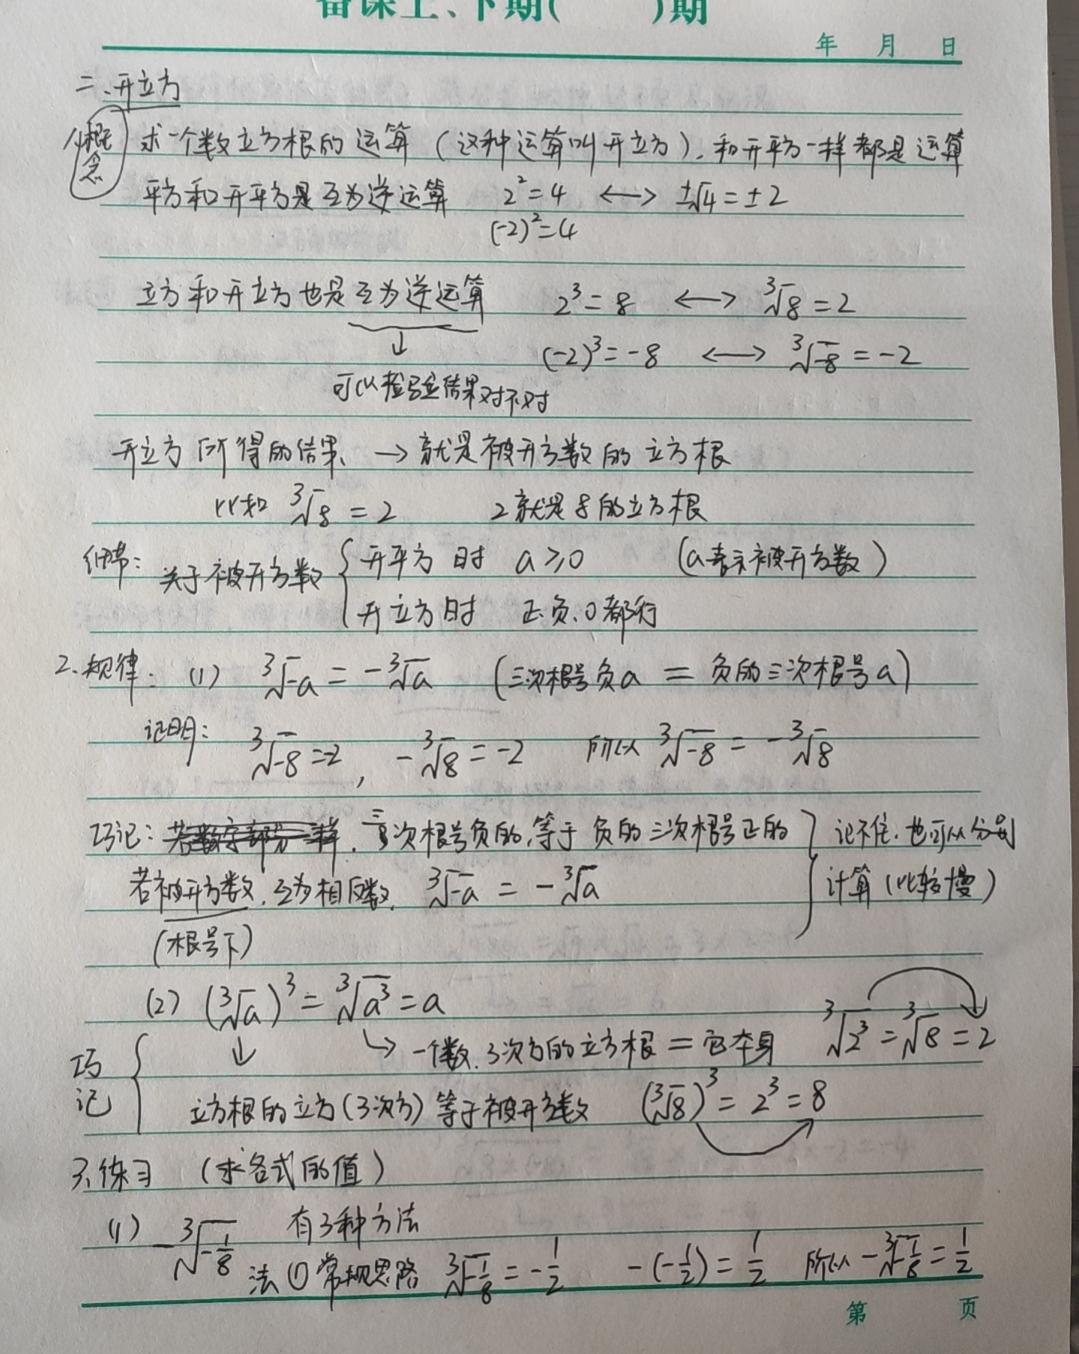 备课上、下期( )期
年 月 日
二、开立方
1、概念 求一个数立方根的运算（这种运算叫开立方），和开平方一样都是运算
平方和开平方是互为逆运算 2²=4 ⟷ ±√4=±2
(-2)²=4
立方和开立方也是互为逆运算 2³=8 ⟷ ³√8=2
↓ (-2)³=-8 ⟷ ³√-8=-2
可以检验结果对不对
开立方所得的结果、→就是被开方数的立方根
比如 ³√8=2 2就是8的立方根
细节：关于被开方数 { 开平方时 a≥0 （a表示被开方数）
开立方时 正、负、0都行
2、规律：(1) ³√-a = -³√a （三次根号负a = 负的三次根号a）
证明： ³√-8=-2, -³√8=-2 所以 ³√-8 = -³√8
巧记：若数字部分一样，三次根号负的，等于负的三次根号正的 } 记不住，也可以分别
若被开方数，互为相反数，³√-a = -³√a 计算（比较慢）
（根号下）
(2) (³√a)³ = ³√a³ = a
巧记 { ↓ ↳ 一个数，3次方的立方根=它本身 ³√2³ = ³√8 = 2
立方根的立方（3次方）等于被开方数 (³√8)³ = 2³ = 8
3、练习 （求各式的值）
(1) -³√-1/8 有3种方法
法① 常规思路 ³√-1/8 = -1/2 -(-1/2) = 1/2 所以 -³√-1/8 = 1/2
第 页